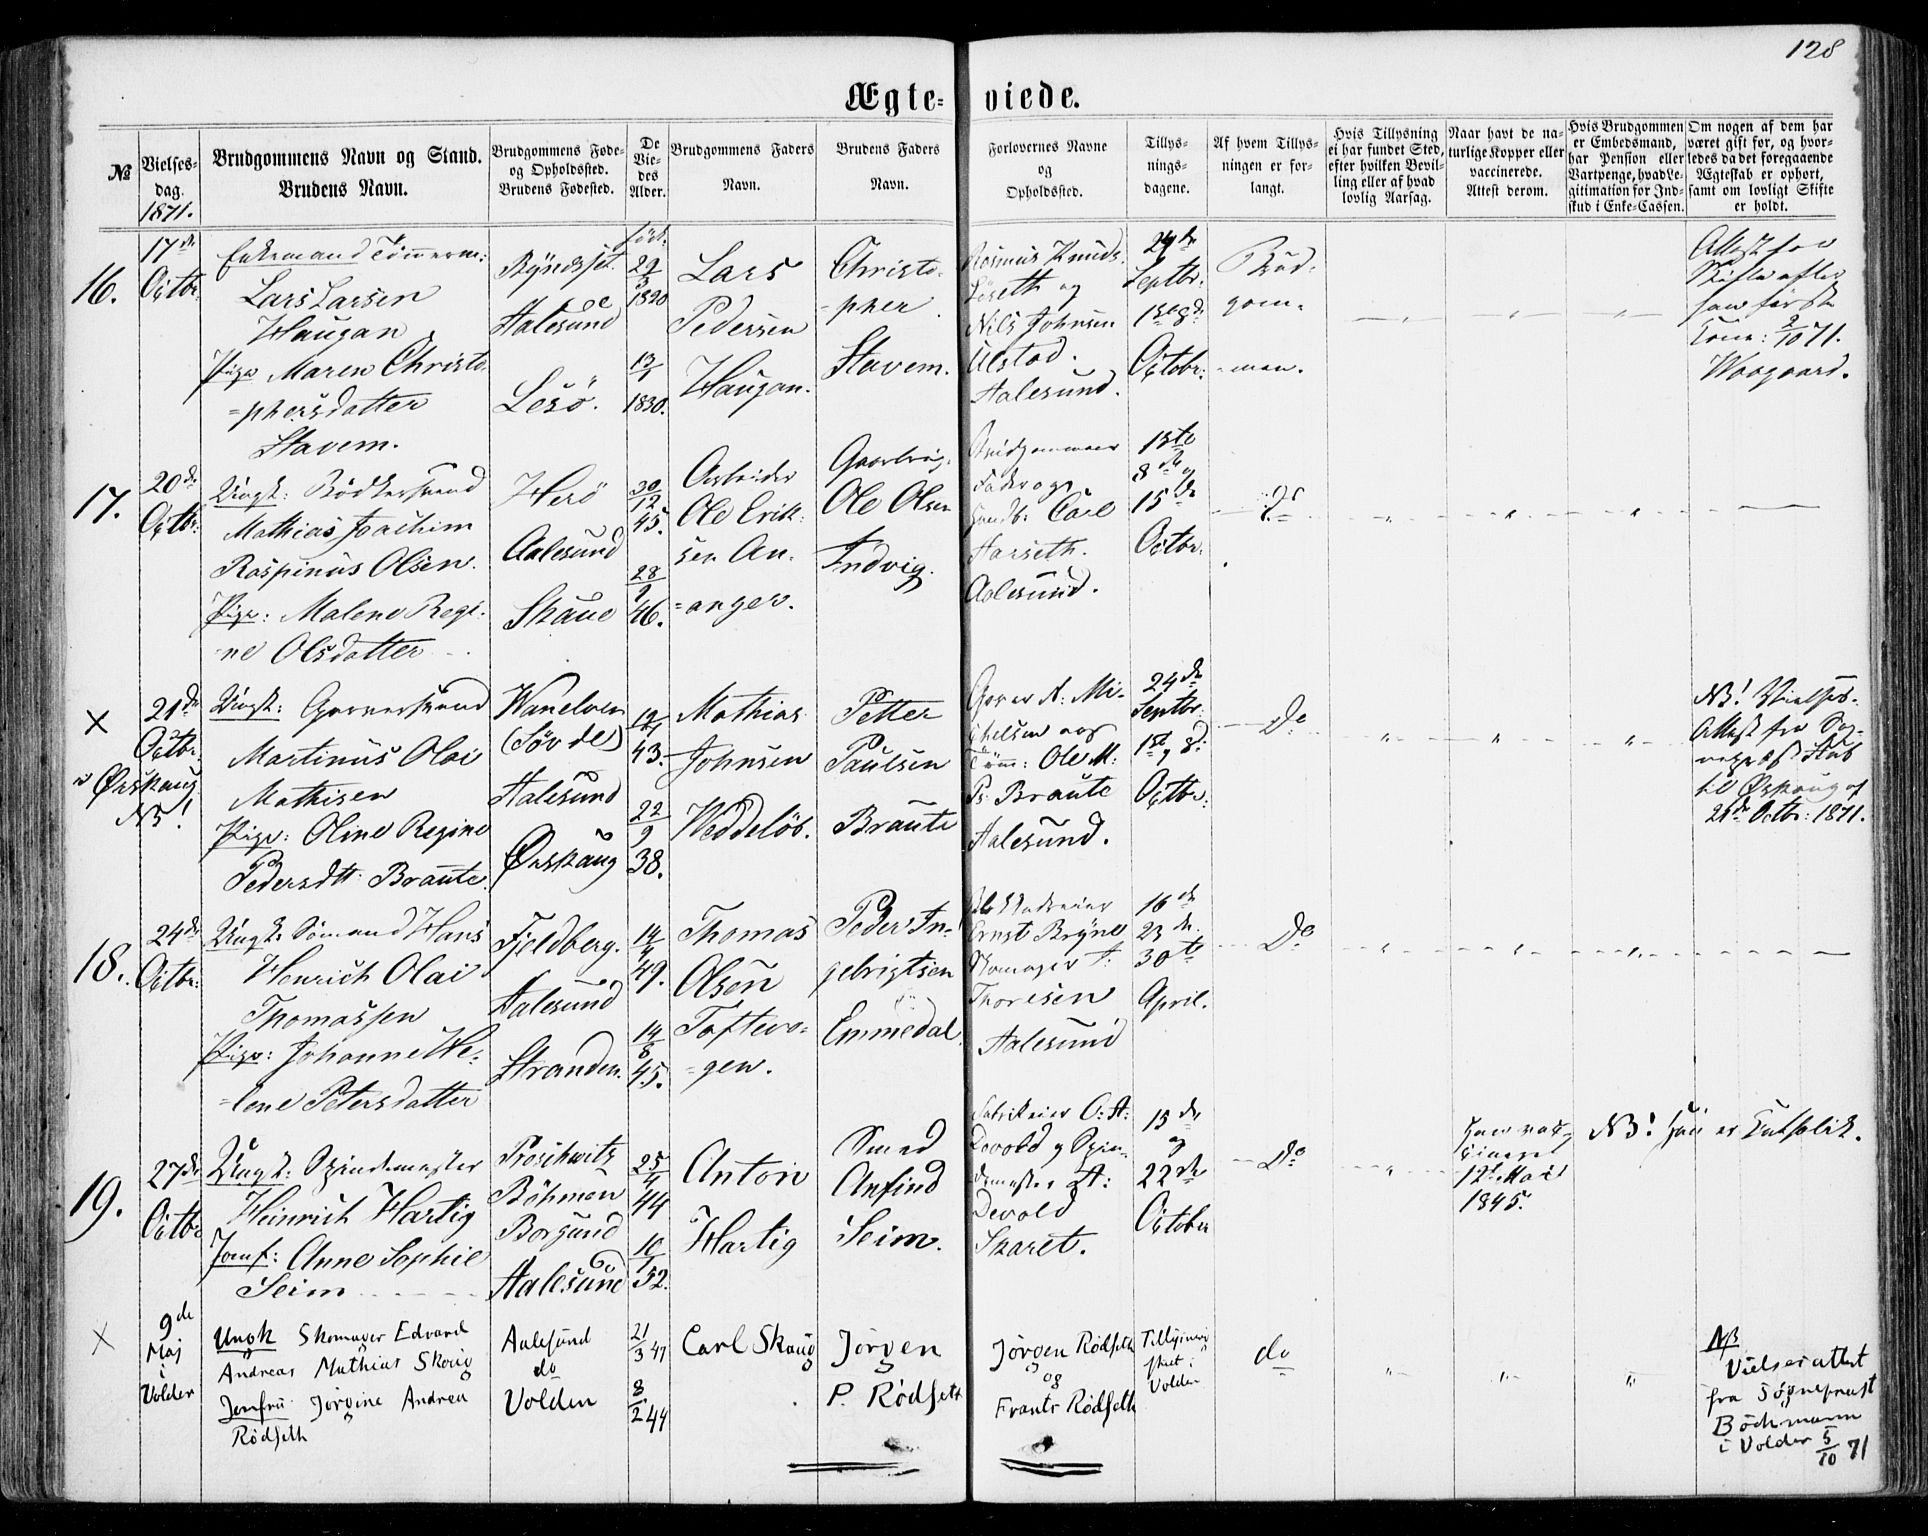 128
Ægteviede.
№
Vielses-
dag.
1871.
Brudgommens Navn og Stand.
Brudens Navn.
Brudgommens Føde-
og Opholdssted.
Brudens Fødested.
De
Vie-
des
Alder.
Brudgommens Faders
Navn.
Brudens Faders
Navn.
Forlovernes Navne
og
Opholdssted.
Tillys-
nings-
dagene.
Af hvem Tillys-
ningen er for-
langt.
Hvis Tillysning
ei har fundet Sted,
efter hvilken Bevil-
ling eller af hvad
lovlig Aarsag.
Naar havt de na-
turlige Kopper eller
vaccinerede.
Attest derom.
Hvis Brudgommen
er Embedsmand,
har Pension eller
Vartpenge, hvad Le-
gitimation for Ind-
skud i Enke-Cassen.
Om nogen af dem har
været gift før, og hvor-
ledes da det foregaaende
Ægteskab er ophørt,
samt om lovligt Skifte
er holdt.
16.
17de
Octbr.
Enkemand Tömmerm:
Lars Larsen
Haugan
Pige Maren Christo
=phersdatter
Stavem.
Aalesund
Lesö.
född.
29/3
1820
13/1
1830.
Lars
Pedersen
Haugan.
Christo-
=pher
Stavem.
Rasmus Knuds.
og
Nils Johnsen
Ulstad.
Aalesund.
24de
Septbr.
1ste og 8de
Octobr:
Brud-
gom-
-men.
Attest for
Skifte efter
hans første
Kone: 2/10 71.
Waagaard.
17.
20de
Octbr.
Ungk: Bödkersvend
Mathias Joachim
Raspinus Olsen.
Pige: Malene Regi-
ne Olsdatter
Herö
Aalesund
Skaue
30/12
45.
28/9
46.
Arbeider
Ole Erik-
sen An-
=anger.
Ole Olsen
Indvig.
Brudgommens
Fader og
Carl
Harseth.
Aalesund.
1ste
8de og
15de
Octbr:
do
×
21de
Octbr.
i Ørskoug
NB!
Ungk: Garversvend
Martinus Olai
Mathisen
Pige: Oline Regine
Pedersdtt: Braute.
Wanelven
(Sövde)
Aalesund
Ørskoug
43.
22/9
38.
Mathias
Johnsen
Weddelöb.
Petter
Paulsen
Braute
Garver A: Mi-
chelsen og
Tömm: Ole M:
Ps: Braute
Aalesund.
24de
Septbr.
1ste og 8de
Octbr:
Do
NB! Vielses-
Attest fra Sog-
nepræst Stub
til Ørskoug af
21de Octbr: 1871.
18.
24de
Octbr:
Ungk: Sömand Hans
Henrich Olai
Thomassen
Pige: Johanne He-
=lene Petersdatter
Fjeldberg.
Aalesund
Stranden.
49.
14/8
45.
Thomas
Olsen
Toftevo-
=gen.
Peder In-
gebrigtsen
Emmedal.
Ernst Bryne
Skomager A:
Thoresen
Aalesund
16de
23de
30te
April.
Do
19.
27de
Octbr
Ungk: Spindemester
Heinrich Hartig
Jomf: Anne Sophie
Seim
Proschwitz
Böhmen
Borgund
Aalesund
25/4
44
10/1
52.
Anton
Hartig
Smed
Anfind
Seim.
Fabrikeier O: A:
Devold og Spin-
demester A:
Devold
Skaret.
15de
og
22de
October
Do
Han vac-
cineret
12te Mai
1845.
NB! Han er Katholik.
×
9de
Maj
i
Volden
Ungk Skomager Edvard
Andreas Mathias Skoug
Jomfru Jörgine Andrea
Rödseth
Aalesund
do
Volden
21/3 47
8/2 44
Carl Skoug
Jörgen
P. Rödseth
Jörgen Rödseth
og
Frants Rödseth
Tillysning
skeet i
Volden
do
NB
Vielsesattest
fra Sognepræst
Böckmann
i Volden 5/10 71